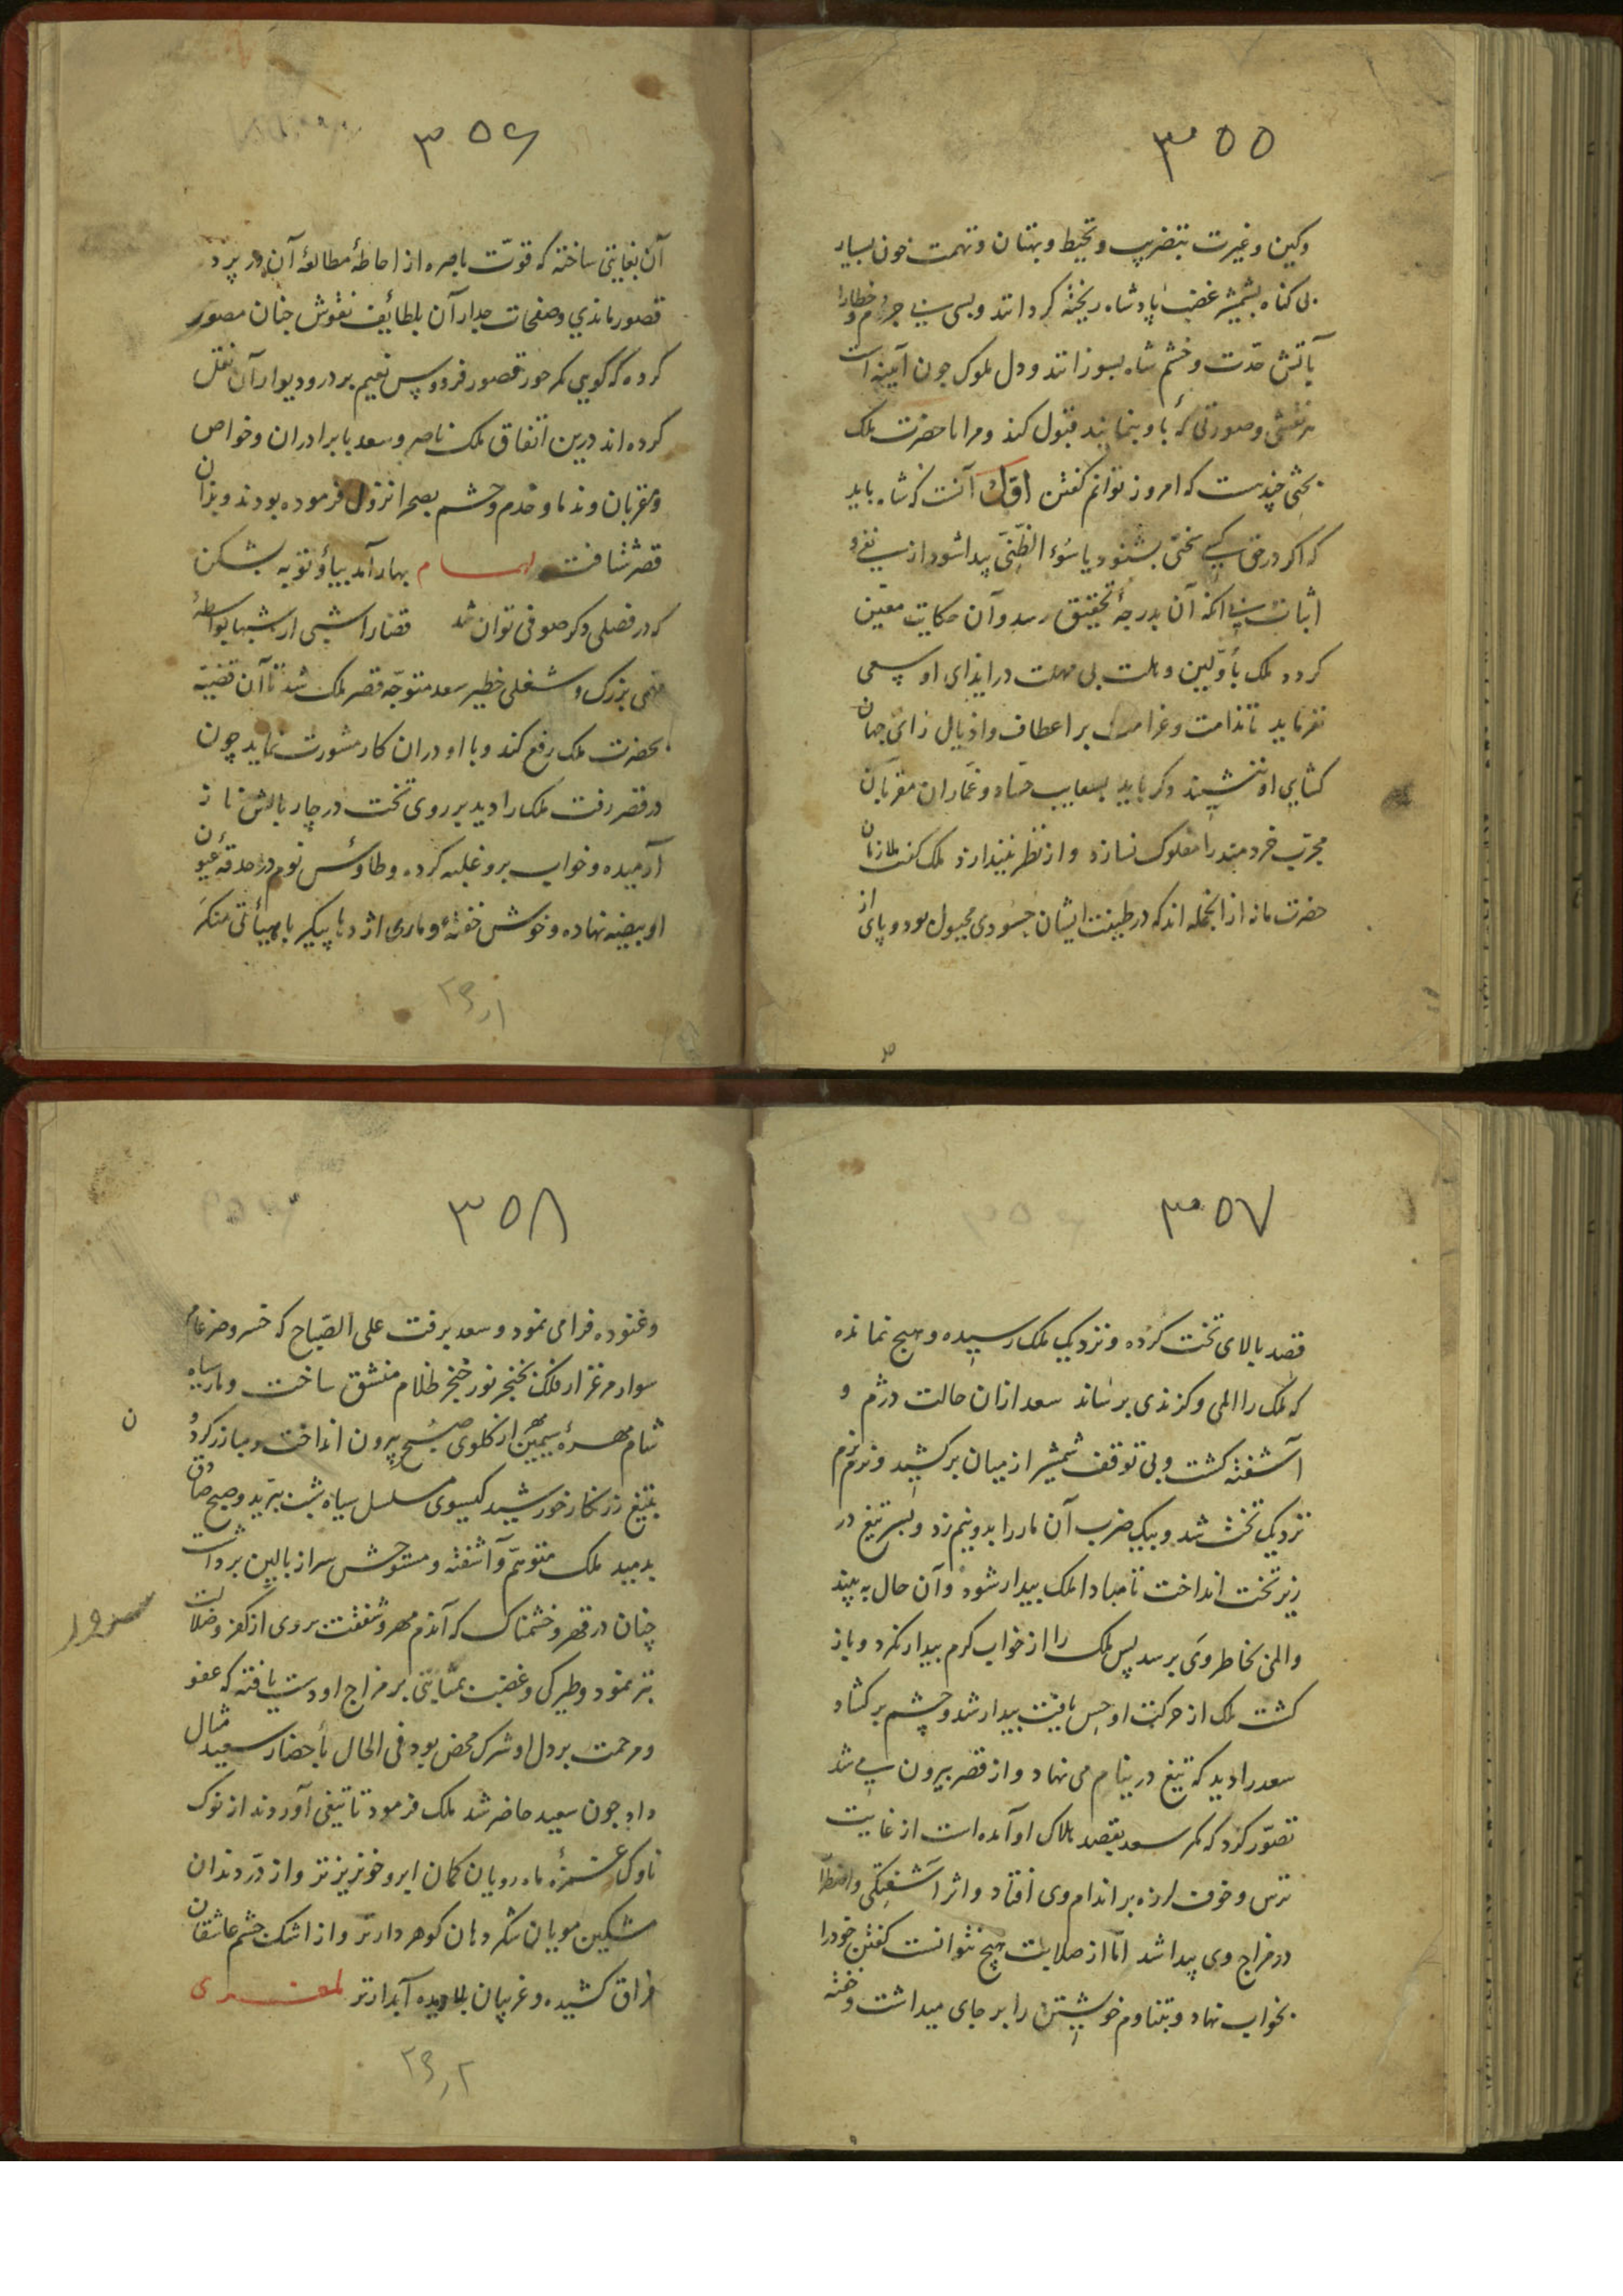 ۳۵۵
وکین و غیرت بتضریب و تخیط و بهتان و تهمت خون بسیار
بی کناه بشمشیر غضب پادشاه ریخته کردانند و بسی بی جرم و خطا را
بآتش حدّت و خشم شاه بسوزانند و دل ملوک چون آیینه است
هر نقشی و صورتی که باو بنمایند قبول کند و مرا با حضرت ملک
بحثی چندست که امروز توانم کفتن اوّل آنست که شاه باید
که اکر در حق کسی سخنی بشنود یا سُوء الظنّی پیدا شود از بی نفی و
اثبات بی آنکه آن بدرجهٔ تحقیق رسد و آن حکایت معیّن
کردد ملک بأوّلین وهلت بی مهلت در ایذای او سعی
نفرماید تا ندامت و غرامت بر اعطاف و اذیال رای جهان
کشای او ننشیند دکر باید بسعایت حسّاد و غمّازان مقربان
مجرّب خردمند را مفلوک نسازد و از نظر نیندازد ملک کفت ملازمان
حضرت ما نه از انجمله اند که در طینت ایشان حسودی مجبول بود و پای از
۳۵۶
آن بغایتی ساخته که قوّت باصره از احاطهٔ مطالعهٔ آن در پردهٔ
قصور ماندی و صفحات جدار آن بلطائف نقوش چنان مصوّر
کرده که کویی مکر حور قصور فردوس نعیم بر در و دیوار آن نقل
کرده اند درین اتفاق ملک ناصر و سعد با برادران و خواص
و مقربان و ندما و خدم و حشم بصحرا نزول فرموده بودند و بدان
قصر شتافت لهمام بهار آمد بیا و توبه بشکن
که در فصلی دکر صوفی توان شد قضا را شبی از شبها بواسطهٔ
مهمّی بزرک و شغلی خطیر سعد متوجّه قصر ملک شد تا آن قضیّه
بحضرت ملک رفع کند و با او در ان کار مشورت نماید چون
در قصر رفت ملک را دید بر روی تخت در چار بالش ناز
آرمیده و خواب برو غلبه کرده و طاوٴس نوم در حدقهٴ عیون
او بیضه نهاده و خوش خفتهٔ و ماری اژدها پیکر با هیأتی منکر
۲۳ر۱
۳۵۷
قصد بالای تخت کرده و نزدیک ملک رسیده و هیچ نمانده
که ملک را المی و کزندی برساند سعد ازان حالت دژم و
آشفته کشت و بی توقف شمشیر از میان برکشید و نرم نرم
نزدیک تخت شد و بیک ضرب آن مار را بدو نیم زد و بسر تیغ در
زیر تخت انداخت تا مبادا ملک بیدار شود و آن حال به بیند
و المی بخاطر وی برسد پس ملک را از خواب کرم بیدار نکرد و باز
کشت ملک از حرکت او حس یافت بیدار شد و چشم برکشاد
سعد را دید که تیغ در نیام می نهاد و از قصر بیرون می شد
تصوّر کرد که مکر سعد بقصد هلاک او آمده است از غایت
ترس و خوف لرزه بر اندام وی افتاد و اثر آشفتکی و اضطرا
در مزاج وی پیدا شد امّا از صلابت هیچ نتوانست کفتن خود را
بخواب نهاد و بتناوم خویشتن را بر جای میداشت و خفته
۳۵۸
و غنوده فرا می نمود و سعد برفت علی الصّباح که خسرو ضرغام
سوار مرغزار فلک بخنجر نور خنجر ظلام منشق ساخت و مار سیاه
شام مهرهٔ سیمین از کلوی صُبح بیرون انداخت و مبارز کردون
بتیغ زرنکار خورشید کیسوی مسلسل سیاه شب ببرّید و صبح صادق
بدمید ملک متوهّم و آشفته و متوحش سر از بالین برداشت
چنان در قهر و خشمناک که آزرم مهر و شفقت بروی از کفر و ضلالت
بتر نمود و طیرکی و غضب بمثابتی بر مزاج او دست یافته که عفو
و مرحمت بر دل او شرک محض بود فی الحال بأحضار سعید مثال
داد چون سعید حاضر شد ملک فرمود تا تیغی آوردند از نوک
ناوک غمزهٔ ماه رویان کمان ابرو خونریزتر و از درّ دندان
مشکین مویان شکر دهان کوهردارتر و از اشک چشم عاشقان
فراق کشیده و غریبان بلا دیده آبدارتر لمعزی
ن
۲۳ر۲